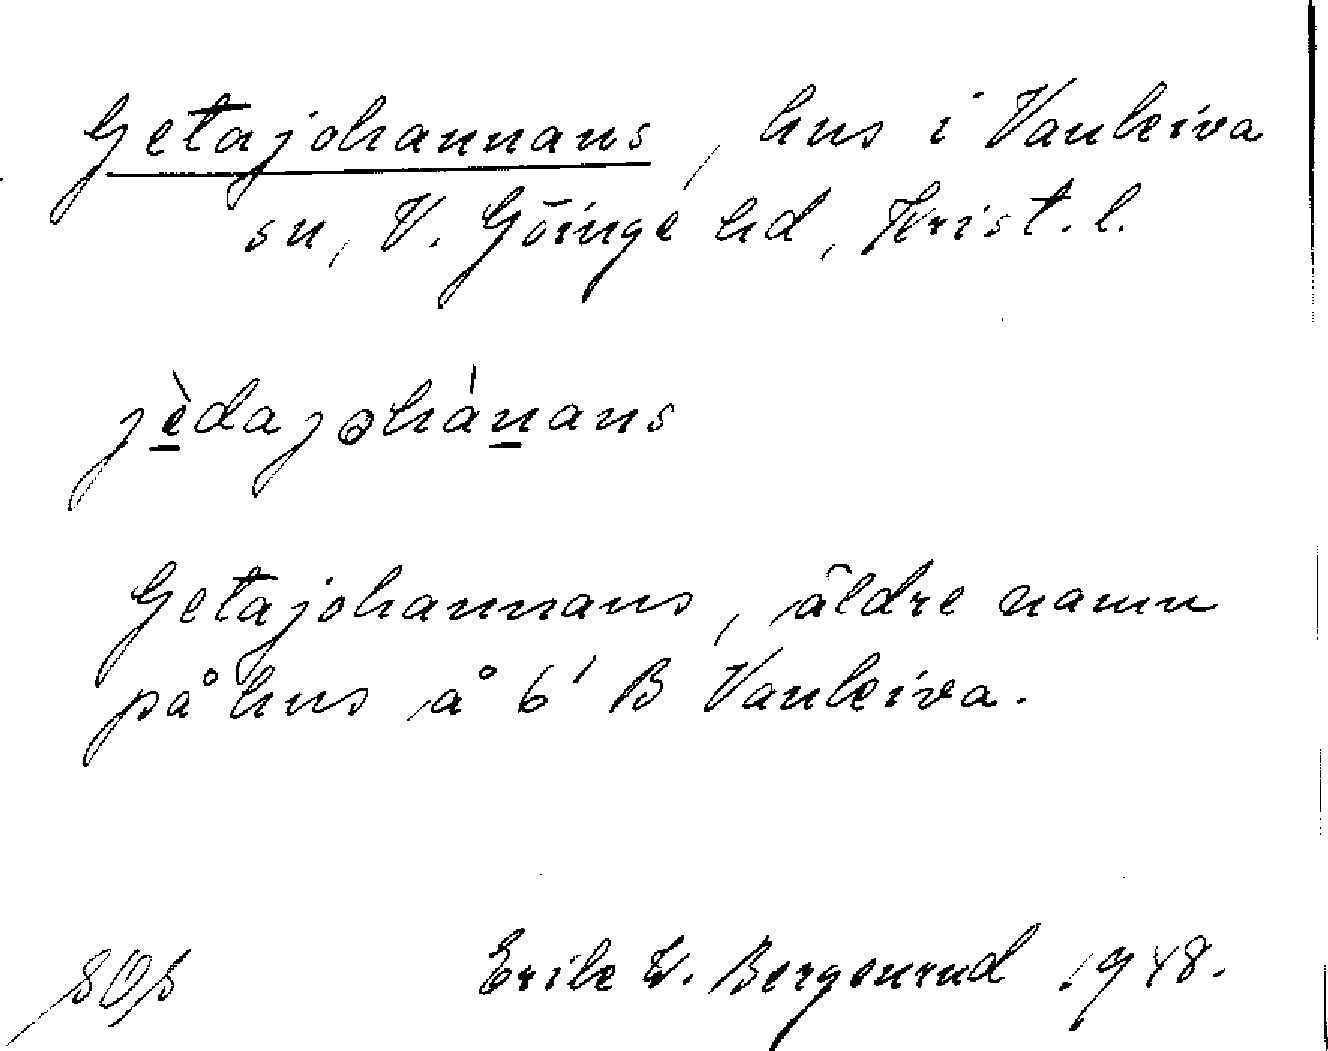 Getajohannans, hus i Vankiva
sn, V. Göinge hd, Krist. l.
jèdajohánans
Getajohannans, äldre namn
på hus å 6' B Vankiva.
Erik W. Bergenrud 1948.